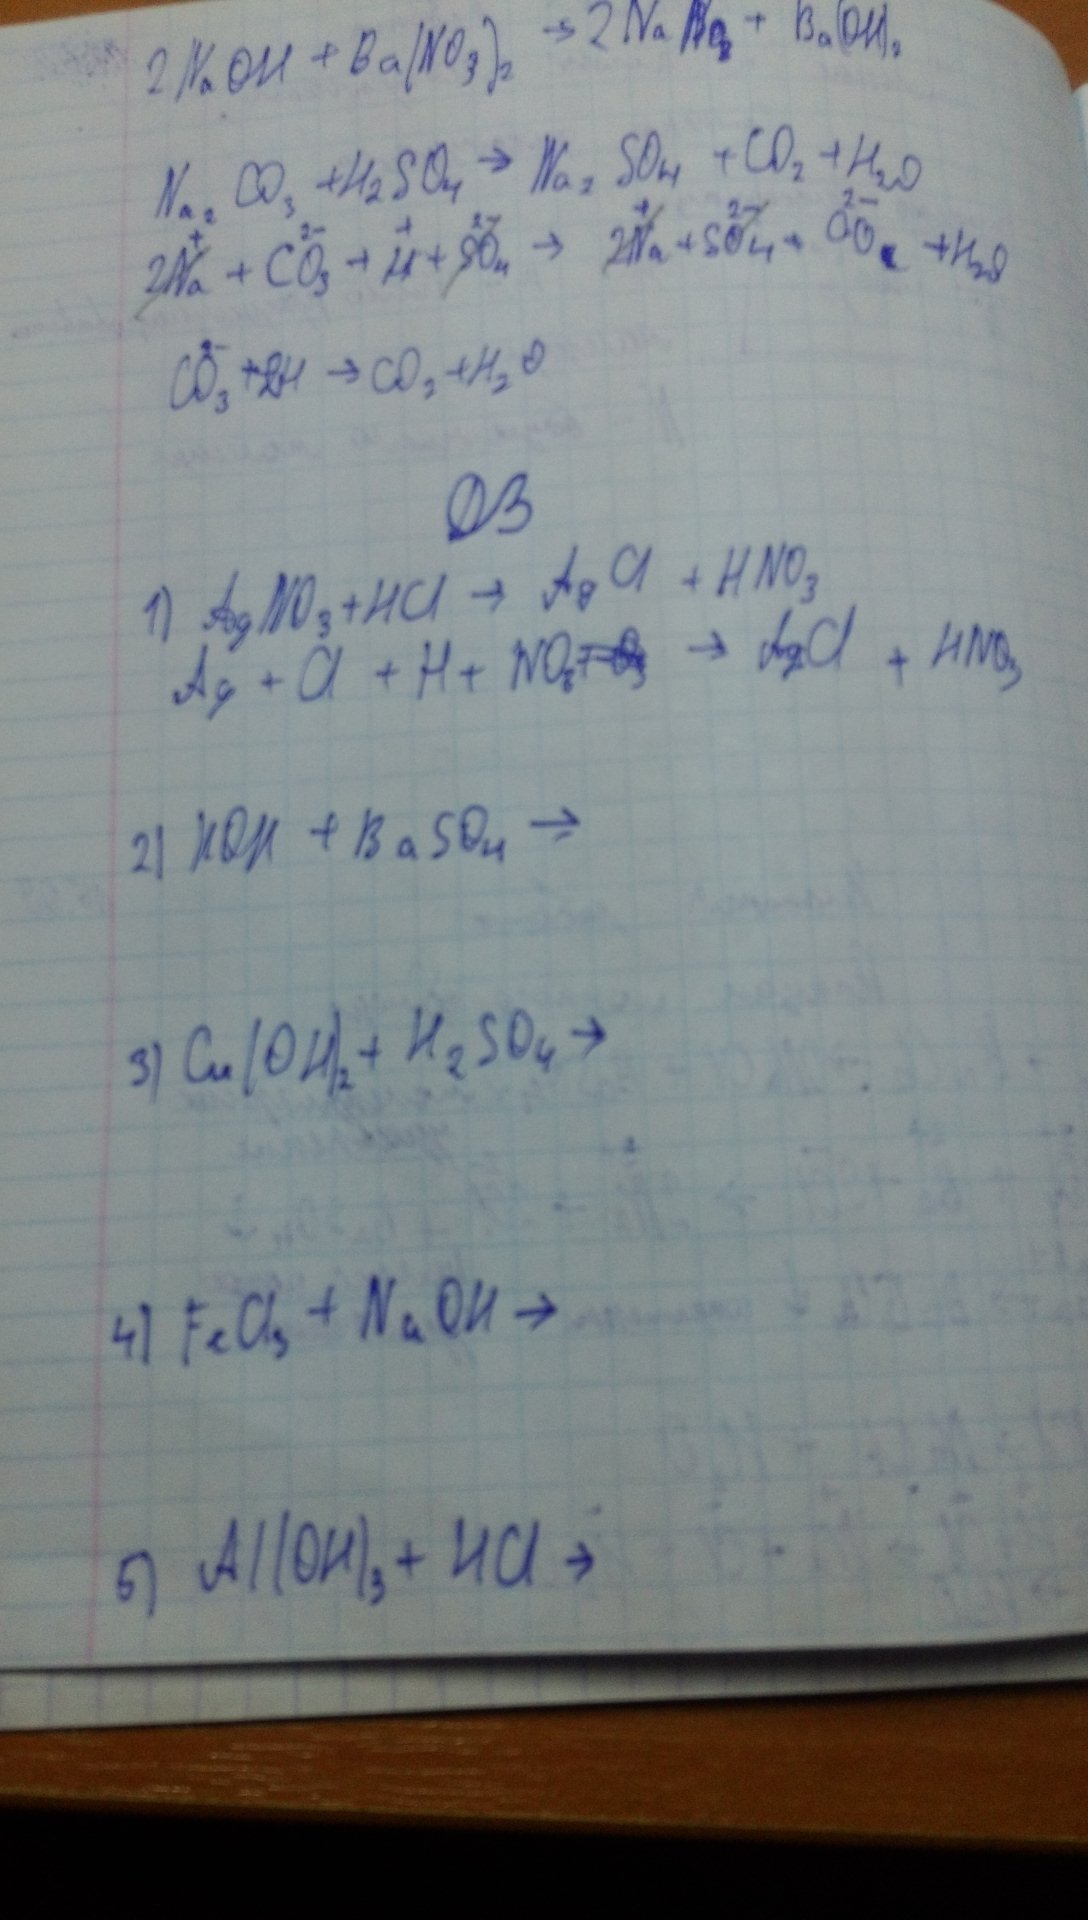 2NaOH + Ba(NO₃)₂ → 2NaNO₃ + Ba(OH)₂
Na₂CO₃ + H₂SO₄ → Na₂SO₄ + CO₂ + H₂O
2Na⁺ + CO₃²⁻ + H⁺ + SO₄²⁻ → 2Na⁺ + SO₄²⁻ + CO₂²⁻ + H₂O
CO₃²⁻ + 2H → CO₂ + H₂O
ДЗ
1) AgNO₃ + HCl → AgCl + HNO₃
Ag + Cl + H + NO₃ → AgCl + HNO₃
2) KOH + BaSO₄ →
3) Cu(OH)₂ + H₂SO₄ →
4) FeCl₃ + NaOH →
5) Al(OH)₃ + HCl →